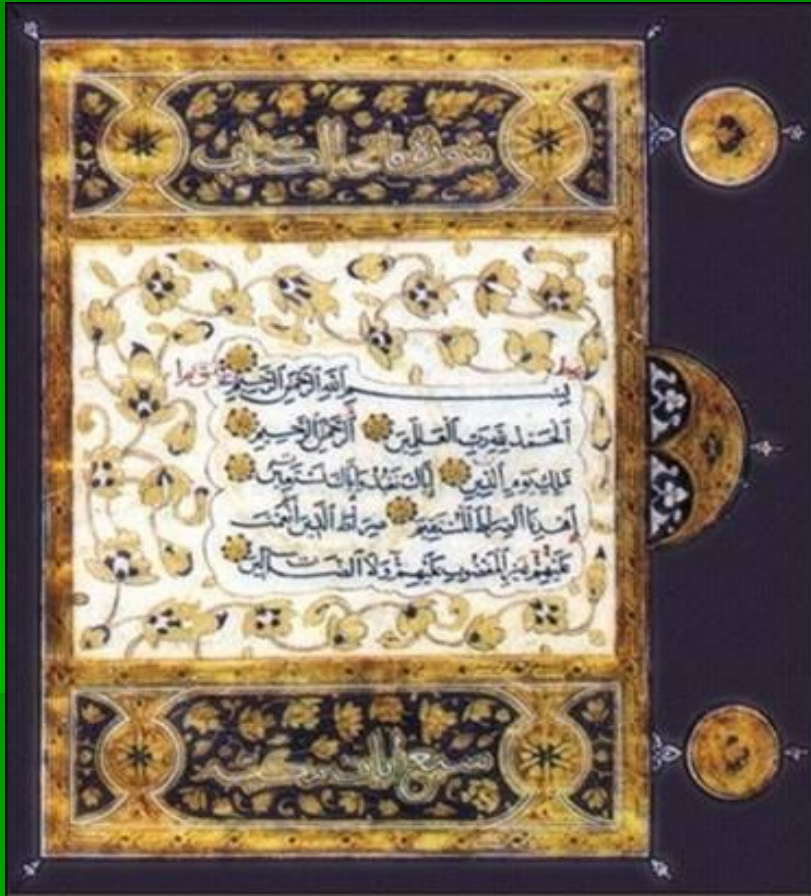 سورة فاتحة الكتاب
بسم الله الرحمن الرحيم
الحمد لله رب العلمين الرحمن الرحيم
ملك يوم الدين إياك نعبد وإياك نستعين
اهدنا الصرط المستقيم صرط الذين أنعمت
عليهم غير المغضوب عليهم ولا الضالين
سبع آيات